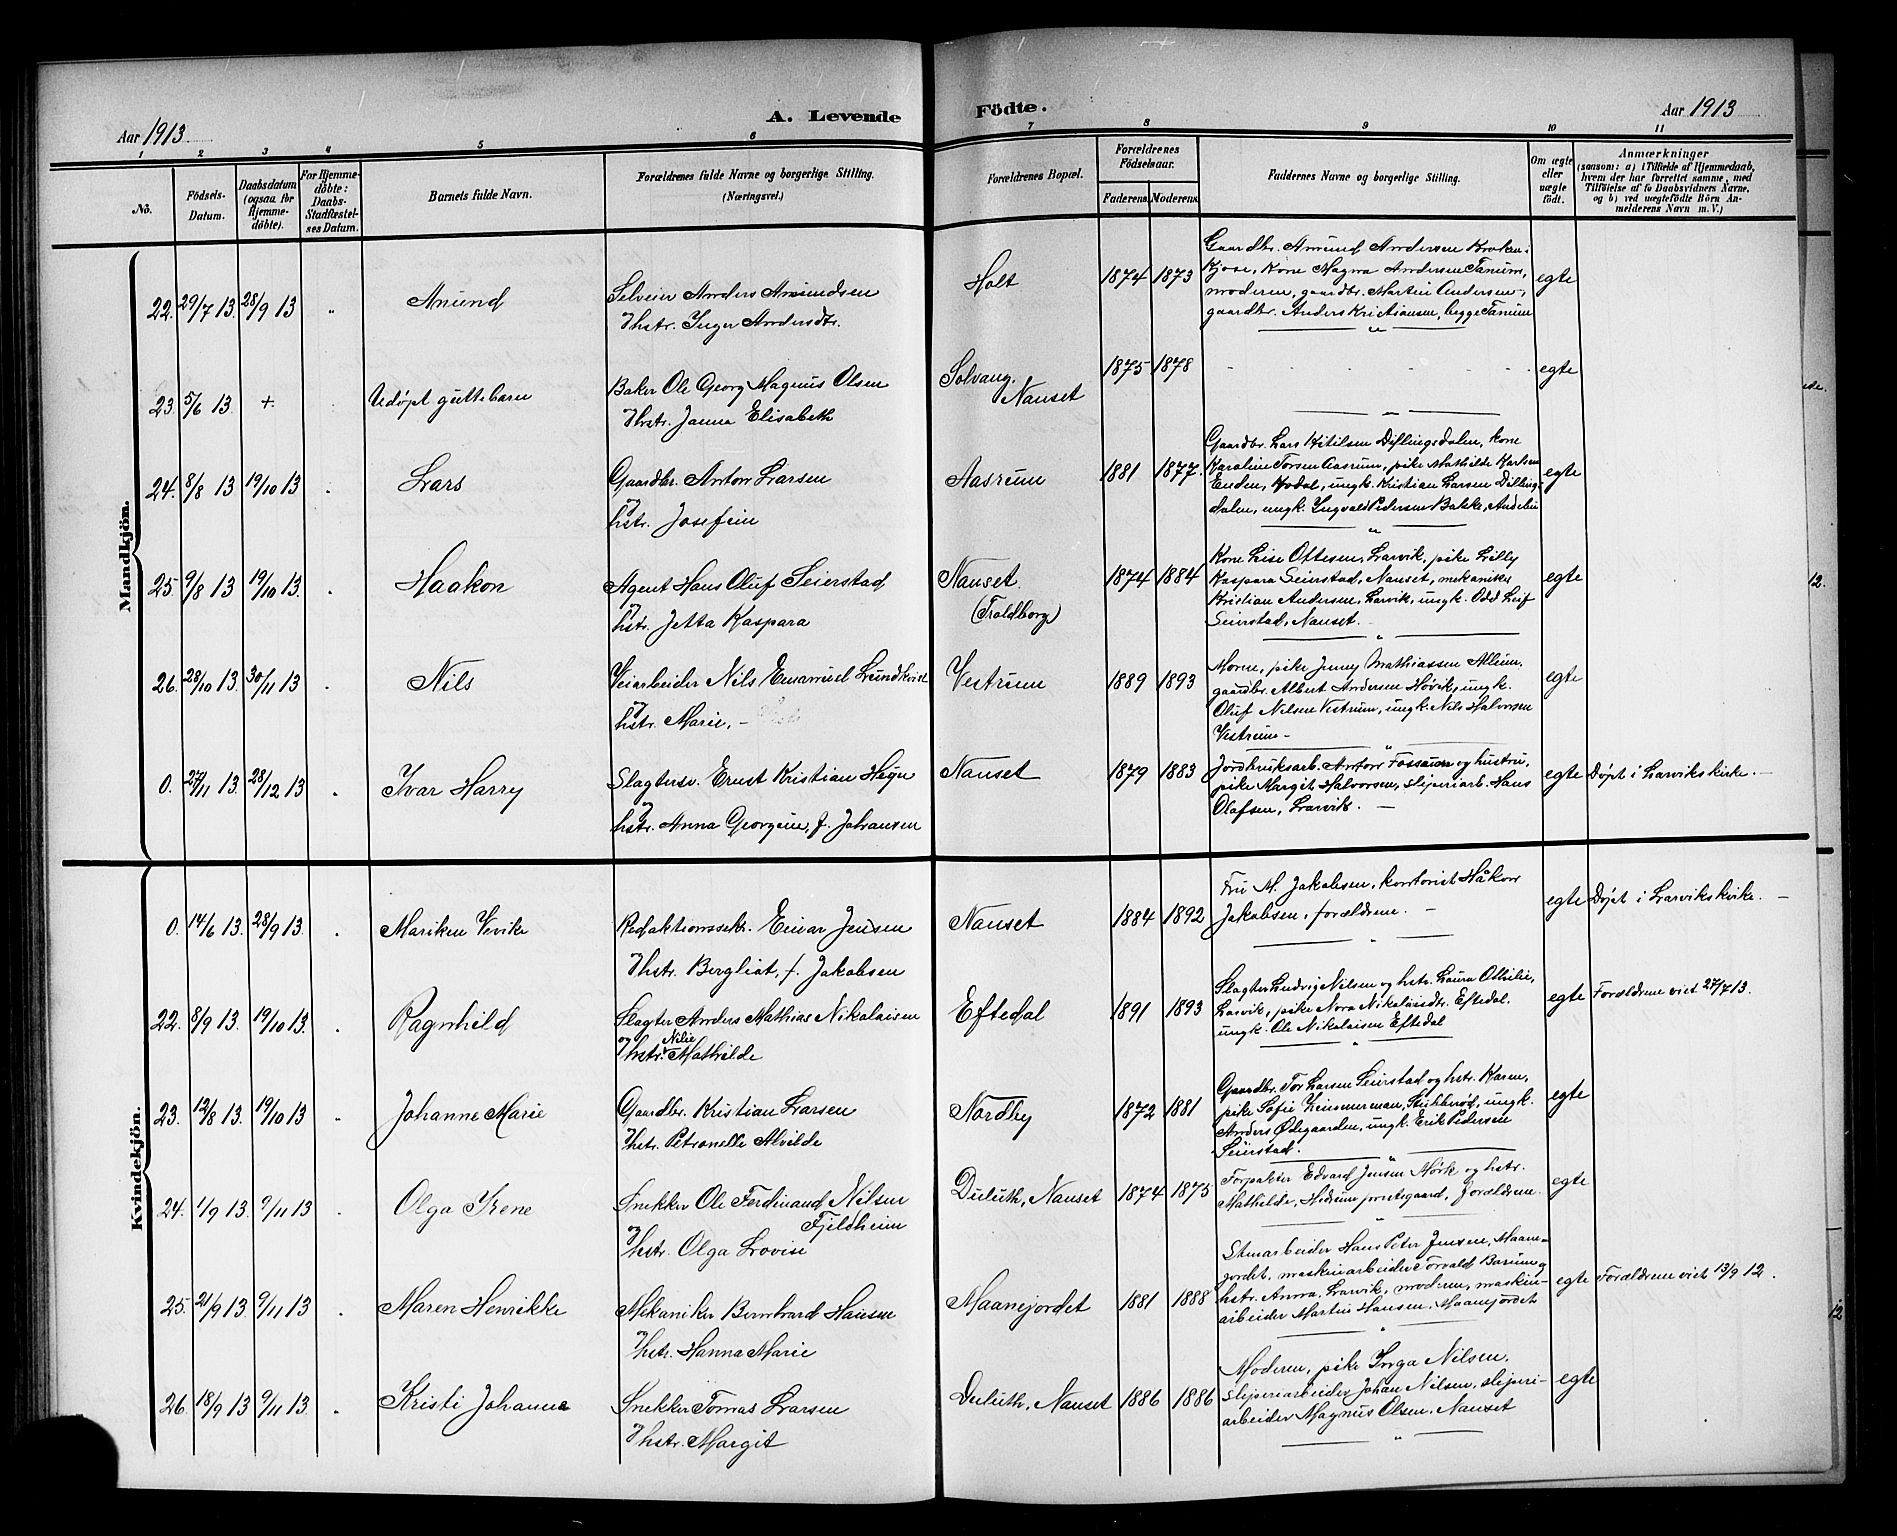 A. Levende Födte.
Aar 1913
Aar 1913
1 2 3 4 5 6 7 8 9 10 11
No.
Födsels-
Datum.
Daabsdatum
(ogsaa for
Hjemme-
döbte).
For Hjemme-
döbte:
Daabs-
Stadfæstel-
ses Datum.
Barnets fulde Navn.
Forældrenes fulde Navne og borgerlige Stilling.
(Næringsvei.)
Forældrenes Bopæl.
Forældrenes
Födselsaar.
Faderens. Moderens.
Faddernes Navne og borgerlige Stilling.
Om ægte
eller
uægte
födt.
Anmærkninger
(saasom: a) i Tilfælde af Hjemmedaab,
hvem der har forrettet samme, med
Tilföielse af to Daabsvidners Navne.
og b) ved uægtefödte Börn An-
melderens Navn m. V.)
Mandkjön.
22. 29/7 13. 28/9 13 " Anund
Selveier Anders Amundsen
Hstr. Inger Andersdtr.
Holt 1874 1873
Gaardbr. Amund Andersen Kroken,
Kjose, Kone Magna Andersen Tanum,
moderen, gaardbr. Martin Andersen,
gaardbr. Anders Kristiansen, begge Tanum
egte
23. 5/6 13. +. Udøpt guttebarn
Baker Ole Georg Magnus Olsen
Hstr. Janna Elisabeth
Solvang,
Nanset
1875 1878
egte
24. 8/8 13 19/10 13 Lars
Gaardbr. Anton Larsen
og
hstr. Josefine
Aasrum 1881 1877.
Gaardbr. Lars Kitilsen Dillingsdalen, kone
Karoline Torsen Aasrum, pike Mathilde Karlsen
Enden, Hvdal, ungk. Kristian Larsen Dillings-
dalen, ungk. Ingvald Pedersen Bakke,
egte
25. 9/8 13 19/10 13. Haakon
Agent Hans Oluf Seierstad
og
hstr. Jetta Kaspara
Nanset.
(Traldborg)
1874 1884
Kone Lise Oftesen, Larvik, pike Lilly
Kaspara Seierstad, Nanset, mekaniker
Kristian Andersen, Larvik, ungk. Odd Leif
Seierstad, Nanset.
egte
26. 28/10 13. 30/11 13 Nils
Veiarbeider Nils Emanuel Lundkvist
og
hstr. Marie. -
Vestrum 1889 1893
Moren, pike Jenny Mathiassen Allum,
gaardbr. Albert Andersen Høvik, ungk.
Oluf Nilsen Vestrum, ungk. Nils Halvorsen
Vestrum -
egte
0. 27/11 13. 28/12 13 Ivar Harry
Slagtersv. Ernst Kristian Høyn
og
hstr. Anna Georgine, f. Johansen
Nanset 1879 1883
Jordbruksarb. Anton Fossum og hustru,
pike Margit Halvorsen, sliperiarb. Hans
Olafsen, Larvik. -
egte Døpt i Larviks kirke. -
Kvindekjön.
0. 14/6 13. 28/9 13. Mariken Vivike
Redaktionssekr. Einar Jensen
Hstr. Bergliot, f. Jakobsen
Nanset 1884 1892
Fru M. Jakobsen, kontorist Håkon
Jakobsen, forældrene. -
egte Døpt i Larviks kirke. -
22. 8/9 13. 19/10 13. Ragnhild
Slagter Anders Mathias Nikolaisen
og Nilie
Hstr. Mathilde
Eftedal 1891 1893
Slagter Ludvig Nilsen og hstr. Laura Othilie,
Larvik, pike Nora Nikolaisdtr. Eftedal.
ungk. Ole Nikolaisen Eftedal
egte Forældrene viet 27/7 13.
23. 12/8 13. 19/10 13. Johanne Marie
Gaardbr. Kristian Larsen
Hstr. Petronelle Alvilde
Nordby 1872 1881
Gaardbr. Tor Larsen Seierstad og hstr. Karen,
pike Sofie Zimmerman, Stubberød, ungk.
Anders Ødegaarden, ungk. Erik Pedersen
Seierstad.
egte
24. 1/9 13. 9/11 13 Olga Irene
Snekker Ole Ferdinand Nilsen
og Fjeldheim
Hstr. Olga Lovise
Duluth, Nanset 1874 1875
Forpakter Edvard Jensen Mørk og hstr.
Mathilde, Hedrum prestegaard, Forældrene.
egte
25. 21/9 13 9/11 13 Maren Henrikke
Mekaniker Bernhard Hansen
Hstr. Hanna Marie
Maanejordet 1881 1888
Stenarbeider Hans Peter Jensen, Maane-
jordet, maskinarbeider Torvald Barum og
hstr. Anna, Larvik, moderen, maskin-
arbeider Martin Hansen, Maanejordet
egte Forældrene viet 13/9 12.
26. 18/9 13 9/11 13. Kristi Johanne
Snekker Tomas Larsen
Hstr. Margit
Duluth, Nanset 1886 1886
Moderen, pike Inga Nilsen,
sliperiarbeider Johan Nilsen, sliperi-
arbeider Magnus Olsen, Nanset
egte